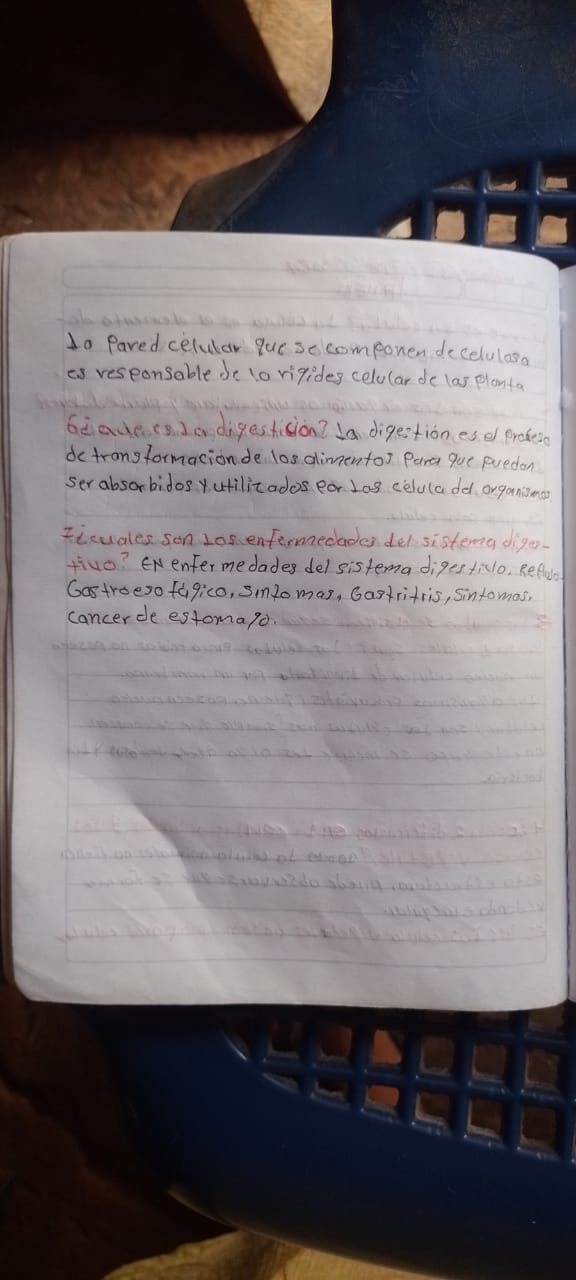 la pared celular que se componen de celulosa
es responsable de la rigides celular de las planta
6¿Que es la digestición? La digestión es el proceso
de transformación de los alimentos para que puedan
ser absorbidos y utilizados por las célula del organismos
7¿cuales son las enfermedades del sistema diges-
tivo? EN enfermedades del sistema digestivo. Reflujo
Gastroesofágico, sintomas, Gastritris, Sintomas,
cancer de estomago.